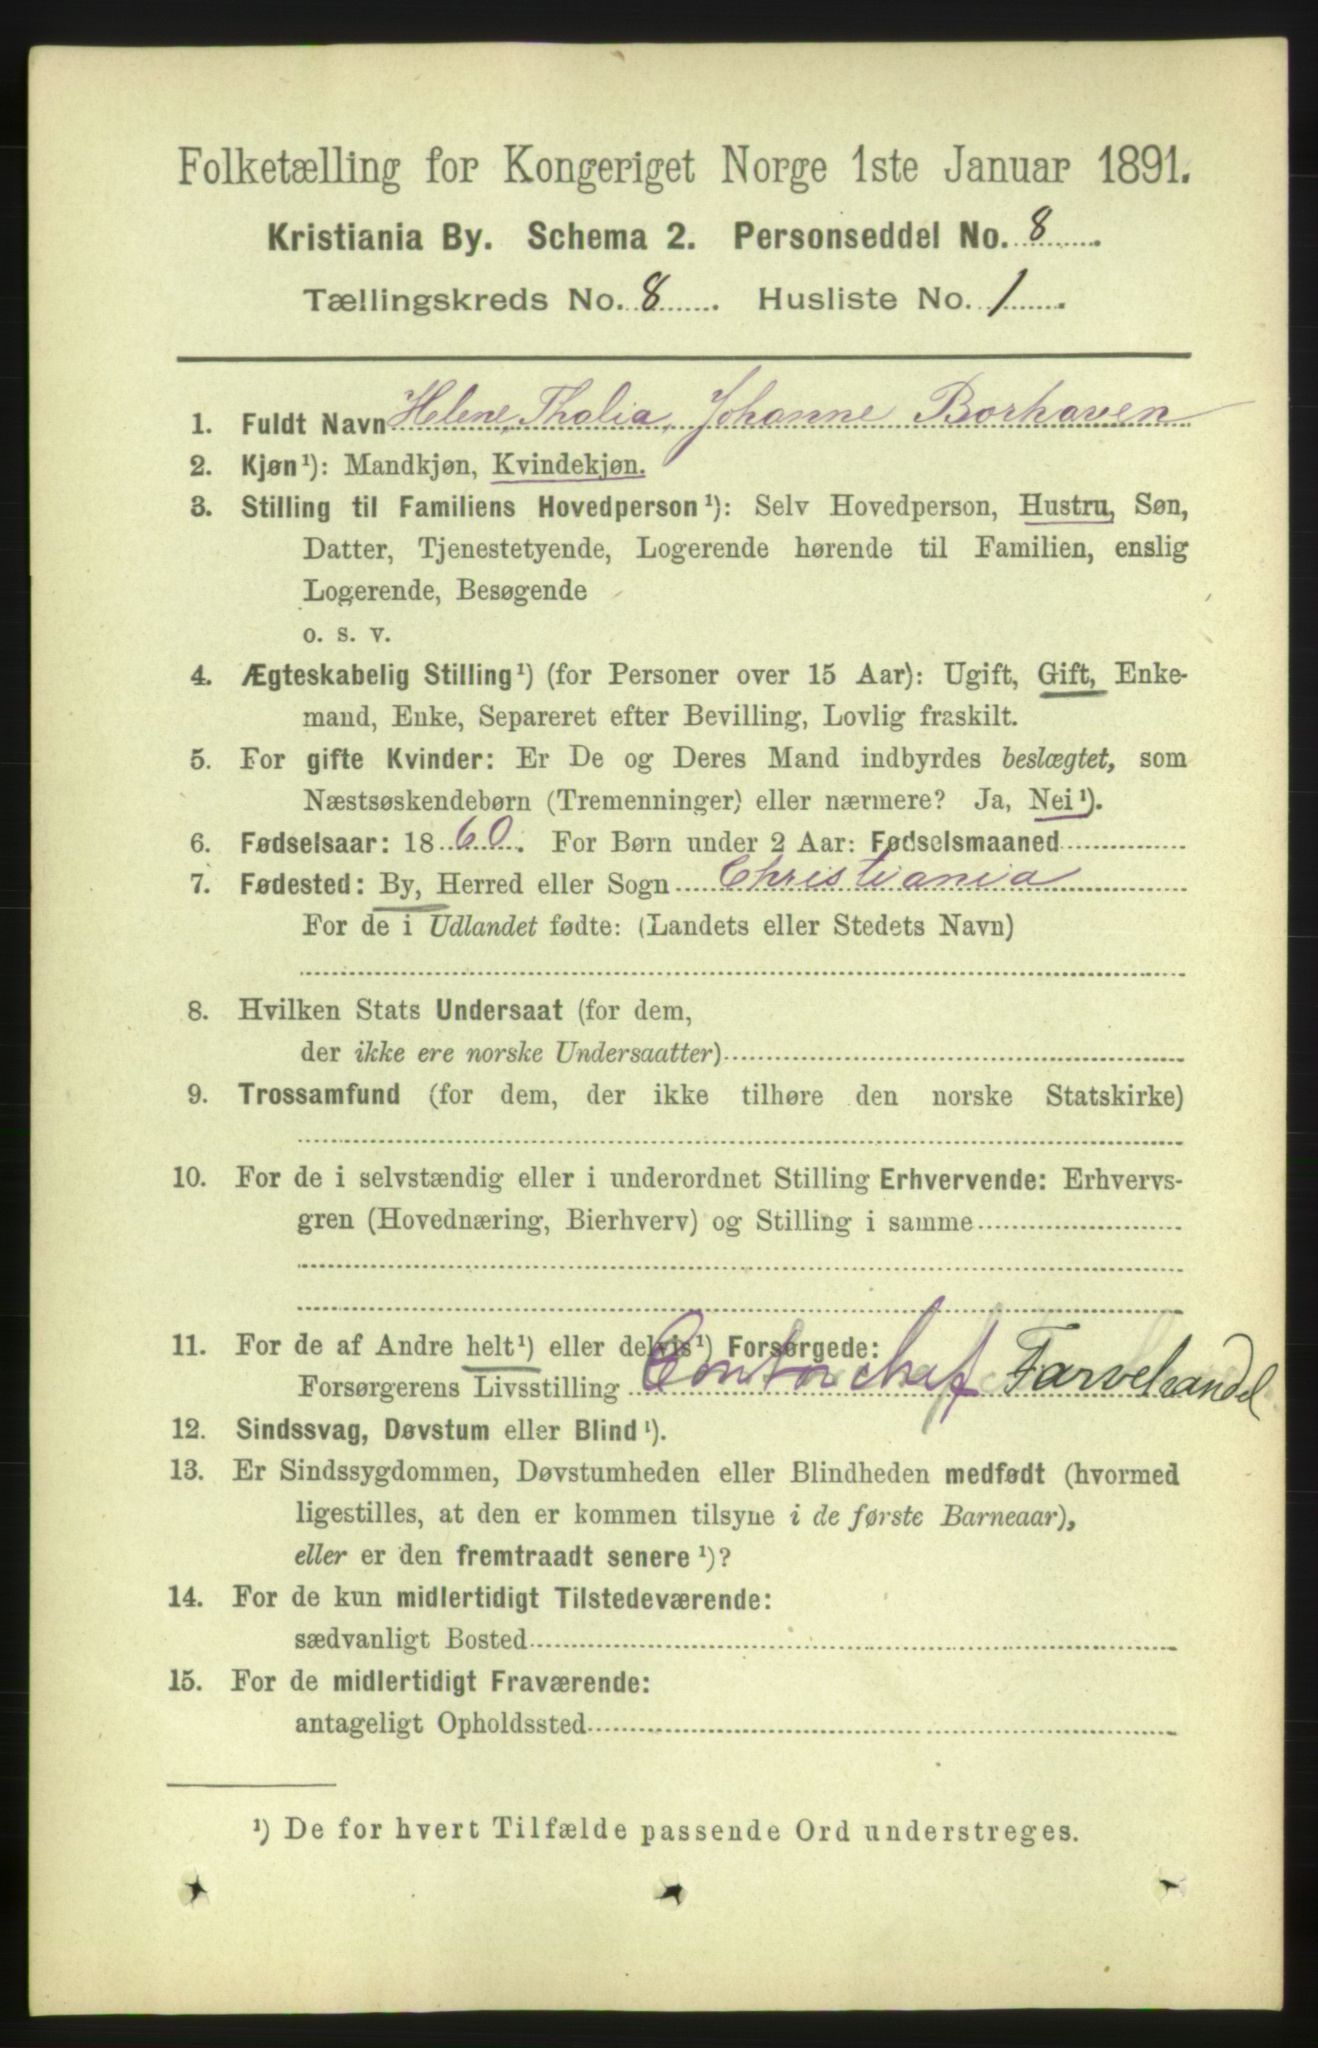 Folketælling for Kongeriget Norge 1ste Januar 1891.
Kristiania By. Schema 2. Personseddel No. 8
Tællingskreds No. 8. Husliste No. 1.
1. Fuldt Navn Helene, Thalia, Johanne Borhaven
2. Kjøn¹): Mandkjøn, Kvindekjøn.
3. Stilling til Familiens Hovedperson¹): Selv Hovedperson, Hustru, Søn,
Datter, Tjenestetyende, Logerende hørende til Familien, enslig
Logerende, Besøgende
o. s. v.
4. Ægteskabelig Stilling¹) (for Personer over 15 Aar): Ugift, Gift, Enke-
mand, Enke, Separeret efter Bevilling, Lovlig fraskilt.
5. For gifte Kvinder: Er De og Deres Mand indbyrdes beslægtet, som
Næstsøskendebørn (Tremenninger) eller nærmere? Ja, Nei¹).
6. Fødselsaar: 1860. For Børn under 2 Aar: Fødselsmaaned
7. Fødested: By, Herred eller Sogn Christiania
For de i Udlandet fødte: (Landets eller Stedets Navn)
8. Hvilken Stats Undersaat (for dem,
der ikke ere norske Undersaatter)
9. Trossamfund (for dem, der ikke tilhøre den norske Statskirke)
10. For de i selvstændig eller i underordnet Stilling Erhvervende: Erhvervs-
gren (Hovednæring, Bierhverv) og Stilling i samme
11. For de af Andre helt¹) eller delvis¹) Forsørgede:
Forsørgerens Livsstilling Contorchef Farvehandel
12. Sindssvag, Døvstum eller Blind¹).
13. Er Sindssygdommen, Døvstumheden eller Blindheden medfødt (hvormed
ligestilles, at den er kommen tilsyne i de første Barneaar),
eller er den fremtraadt senere¹)?
14. For de kun midlertidigt Tilstedeværende:
sædvanligt Bosted
15. For de midlertidigt Fraværende:
antageligt Opholdssted
¹) De for hvert Tilfælde passende Ord understreges.